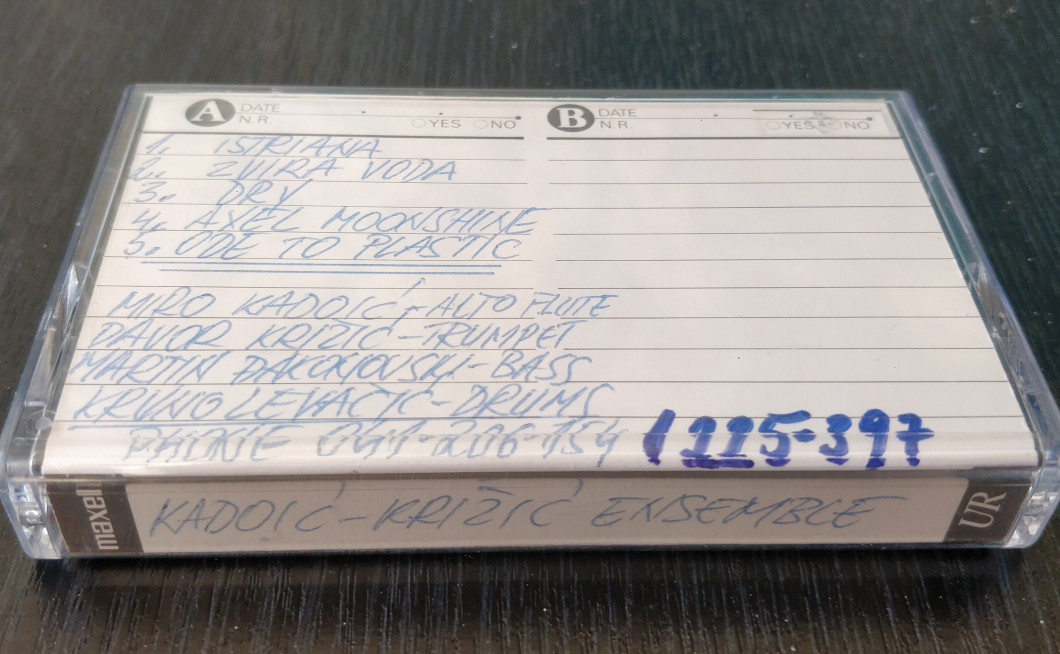 A DATE
N.R. YES NO
B DATE
N.R. YES NO
1. ISTRIANA
2. ZVIRA VODA
3. DRY
4. AXEL MOONSHINE
5. ODE TO PLASTIC
MIRO KADOIĆ - ALTO FLUTE
DAVOR KRIŽIĆ - TRUMPET
MARTIN - BASS
KRUNO LEVAČIĆ - DRUMS
PHONE 041-206-154 (225-397
maxell KADOIĆ - KRIŽIĆ ENSEMBLE UR